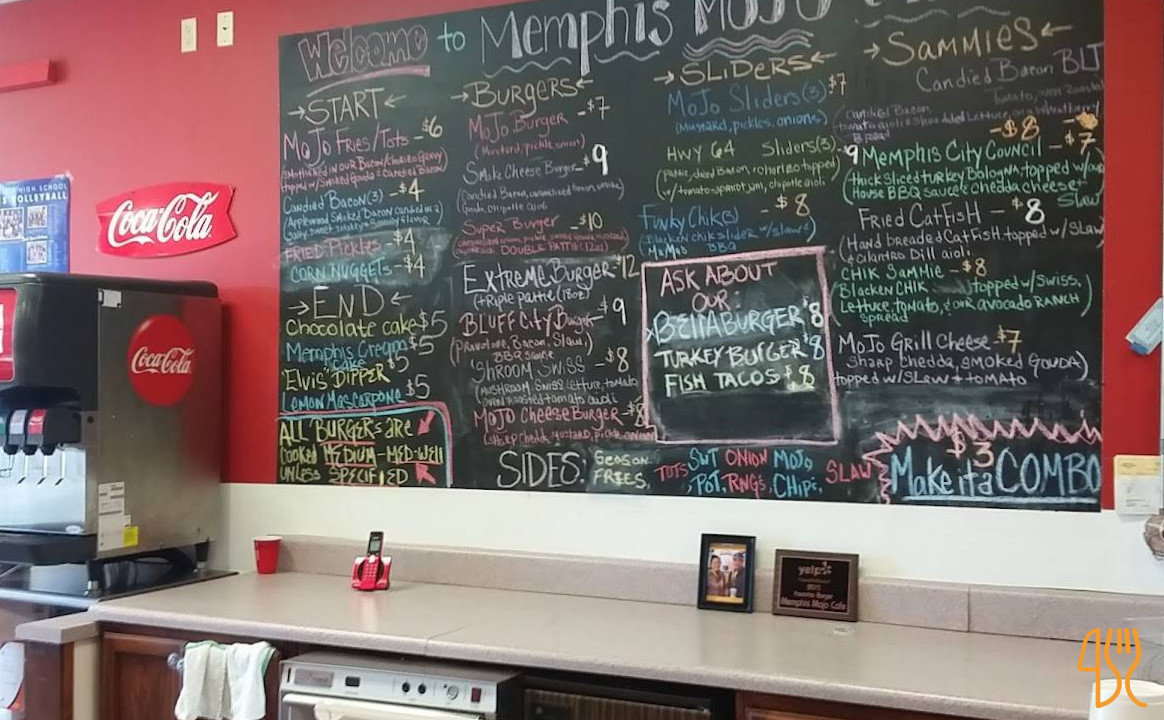 Welcome to Memphis MoJo
→START←
MoJo Fries/Tots - $6
topped w/Smoked Gouda & Candied Bacon
Candied Bacon(3) - $4
FRIED PICKLES - $4
CORN NUGGETS - $4
→END←
Chocolate cake $5
Memphis Cream
Cake $5
"Elvis" DIPPER
Lemon Mascarpone $5
ALL BURGERS are
cooked MEDIUM - MED-WELL
UNLESS SPECIFIED
→BURGERS←
MoJo Burger - $7
(Mustard, pickle, onion)
Smoke Cheese Burger - $9
Gouda, chipotle aioli
Super Burger - $10
DOUBLE PATTIE (12oz)
EXTREME BURGER - $12
(triple pattie (18oz)
BLUFF City Burger - $9
(Provolone, Bacon, Slaw,)
BBQ Sauce
'SHROOM SWISS - $8
(MUSHROOM, SWISS, lettuce, tomato
oven roasted tomato aioli
MOJO CHEESE BURGER - $8
(sharp chedda, mustard, pickle, onion)
→SLIDERS←
MoJo Sliders(3) $7
(Mustard, pickles, onions)
HWY 64 Sliders(3) - $9
w/tomato-apricot jam, chipotle aioli
Funky Chik(3) - $8
(Blacken chik slider w/slaw &
BBQ
ASK ABOUT
OUR:
BELLABURGER $8
TURKEY BURGER $8
FISH TACOS $8
→SAMMIES←
Candied Bacon BLT
(Candied Bacon
tomato aioli & shredded lettuce, on wheatberry
Bread
- $8
Memphis City Council - $7
(thick sliced turkey Bologna topped w/our
House BBQ sauce & chedda cheese &
Slaw
Fried CatFisH - $8
(Hand breaded CatFish topped w/slaw
& Cilantro Dill aioli
CHIK SAMMIE - $8
(Blacken CHIK topped w/Swiss,
Lettuce, tomato, & our avocado RANCH
spread
MoJo Grill Cheese - $7
Sharp Chedda, smoked GOUDA)
topped w/Slaw + tomato
SIDES: SEASON FRIES, TOTS SWT POT, ONION RNG'S MOJO CHIPS, SLAW
$3
Make it a COMBO
HIGH SCHOOL
VOLLEYBALL
Coca-Cola
Coca-Cola
yelp
2015
Favorite Burger
Memphis Mojo Cafe